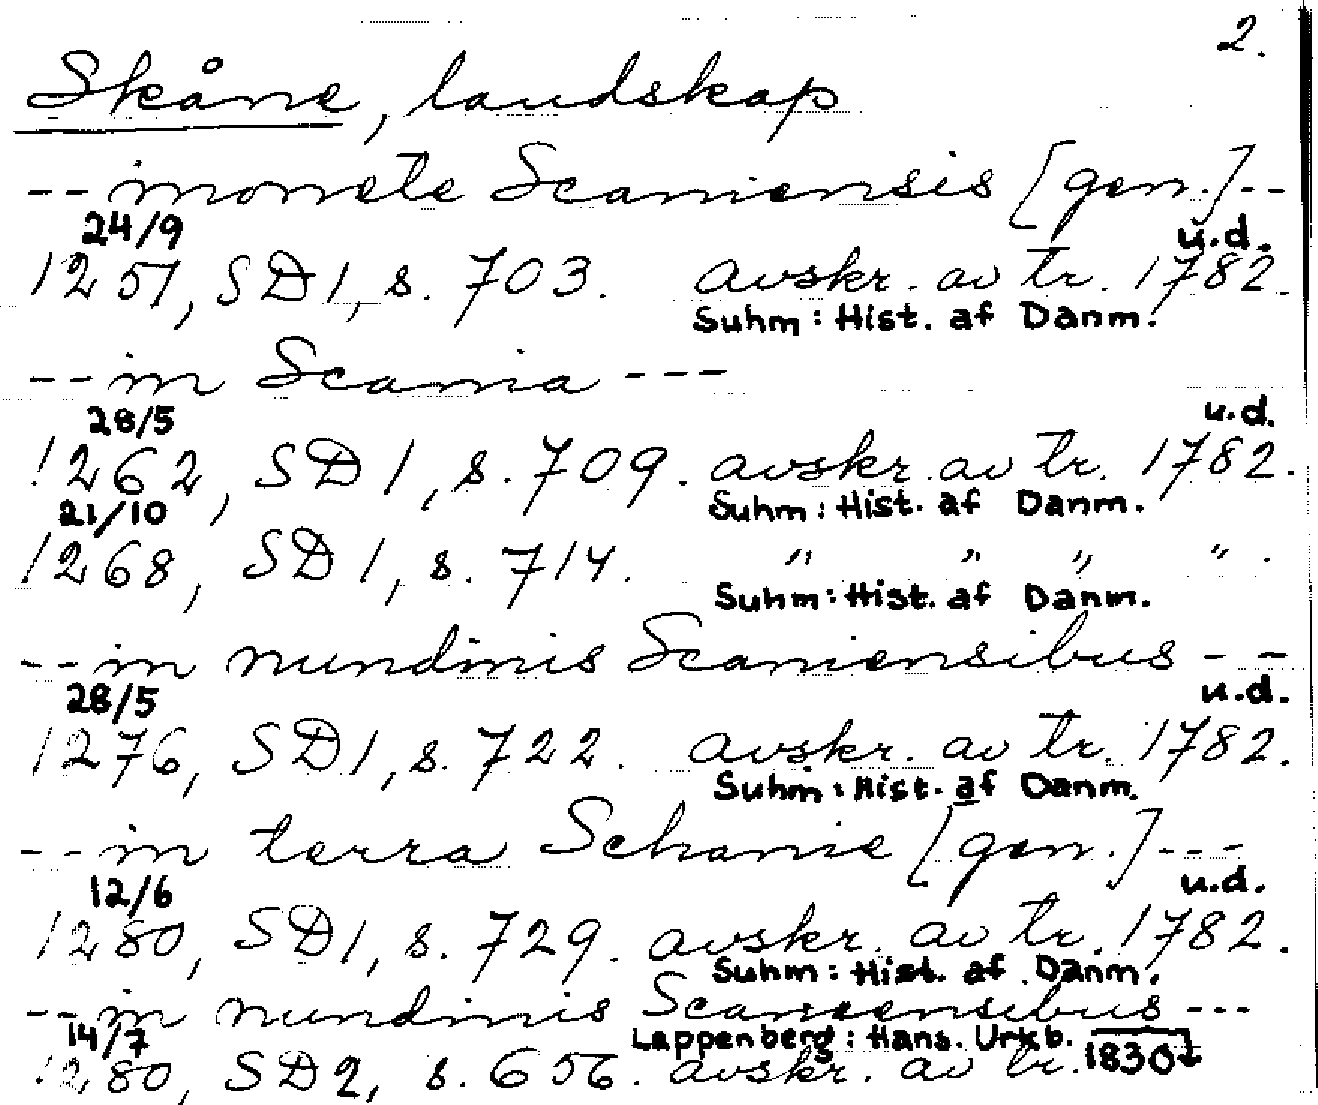 2.
Skåne, landskap
-- monete Scaniensis [gen.]--
24/9 u.d.
1251, SD1, s. 703. avskr. av tr. 1782.
Suhm: Hist. af Danm.
-- in Scania ---
28/5 u.d.
1262, SD1, s. 709. avskr. av tr. 1782.
21/10 Suhm: Hist. af Danm.
1268, SD1, s. 714. " " " " .
Suhm: Hist. af Danm.
-- in nundinis Scaniensibus --
28/5 u.d.
1276, SD1, s. 722. avskr. av tr. 1782.
Suhm: Hist. af Danm.
-- in terra Schanie [gen.]---
12/6 u.d.
1280, SD1, s. 729. avskr. av tr. 1782.
Suhm: Hist. af Danm.
-- in nundinis Scaniensibus ---
14/7 Lappenberg: Hans. Urkb.
1280, SD2, s. 656. avskr. av tr. 1830